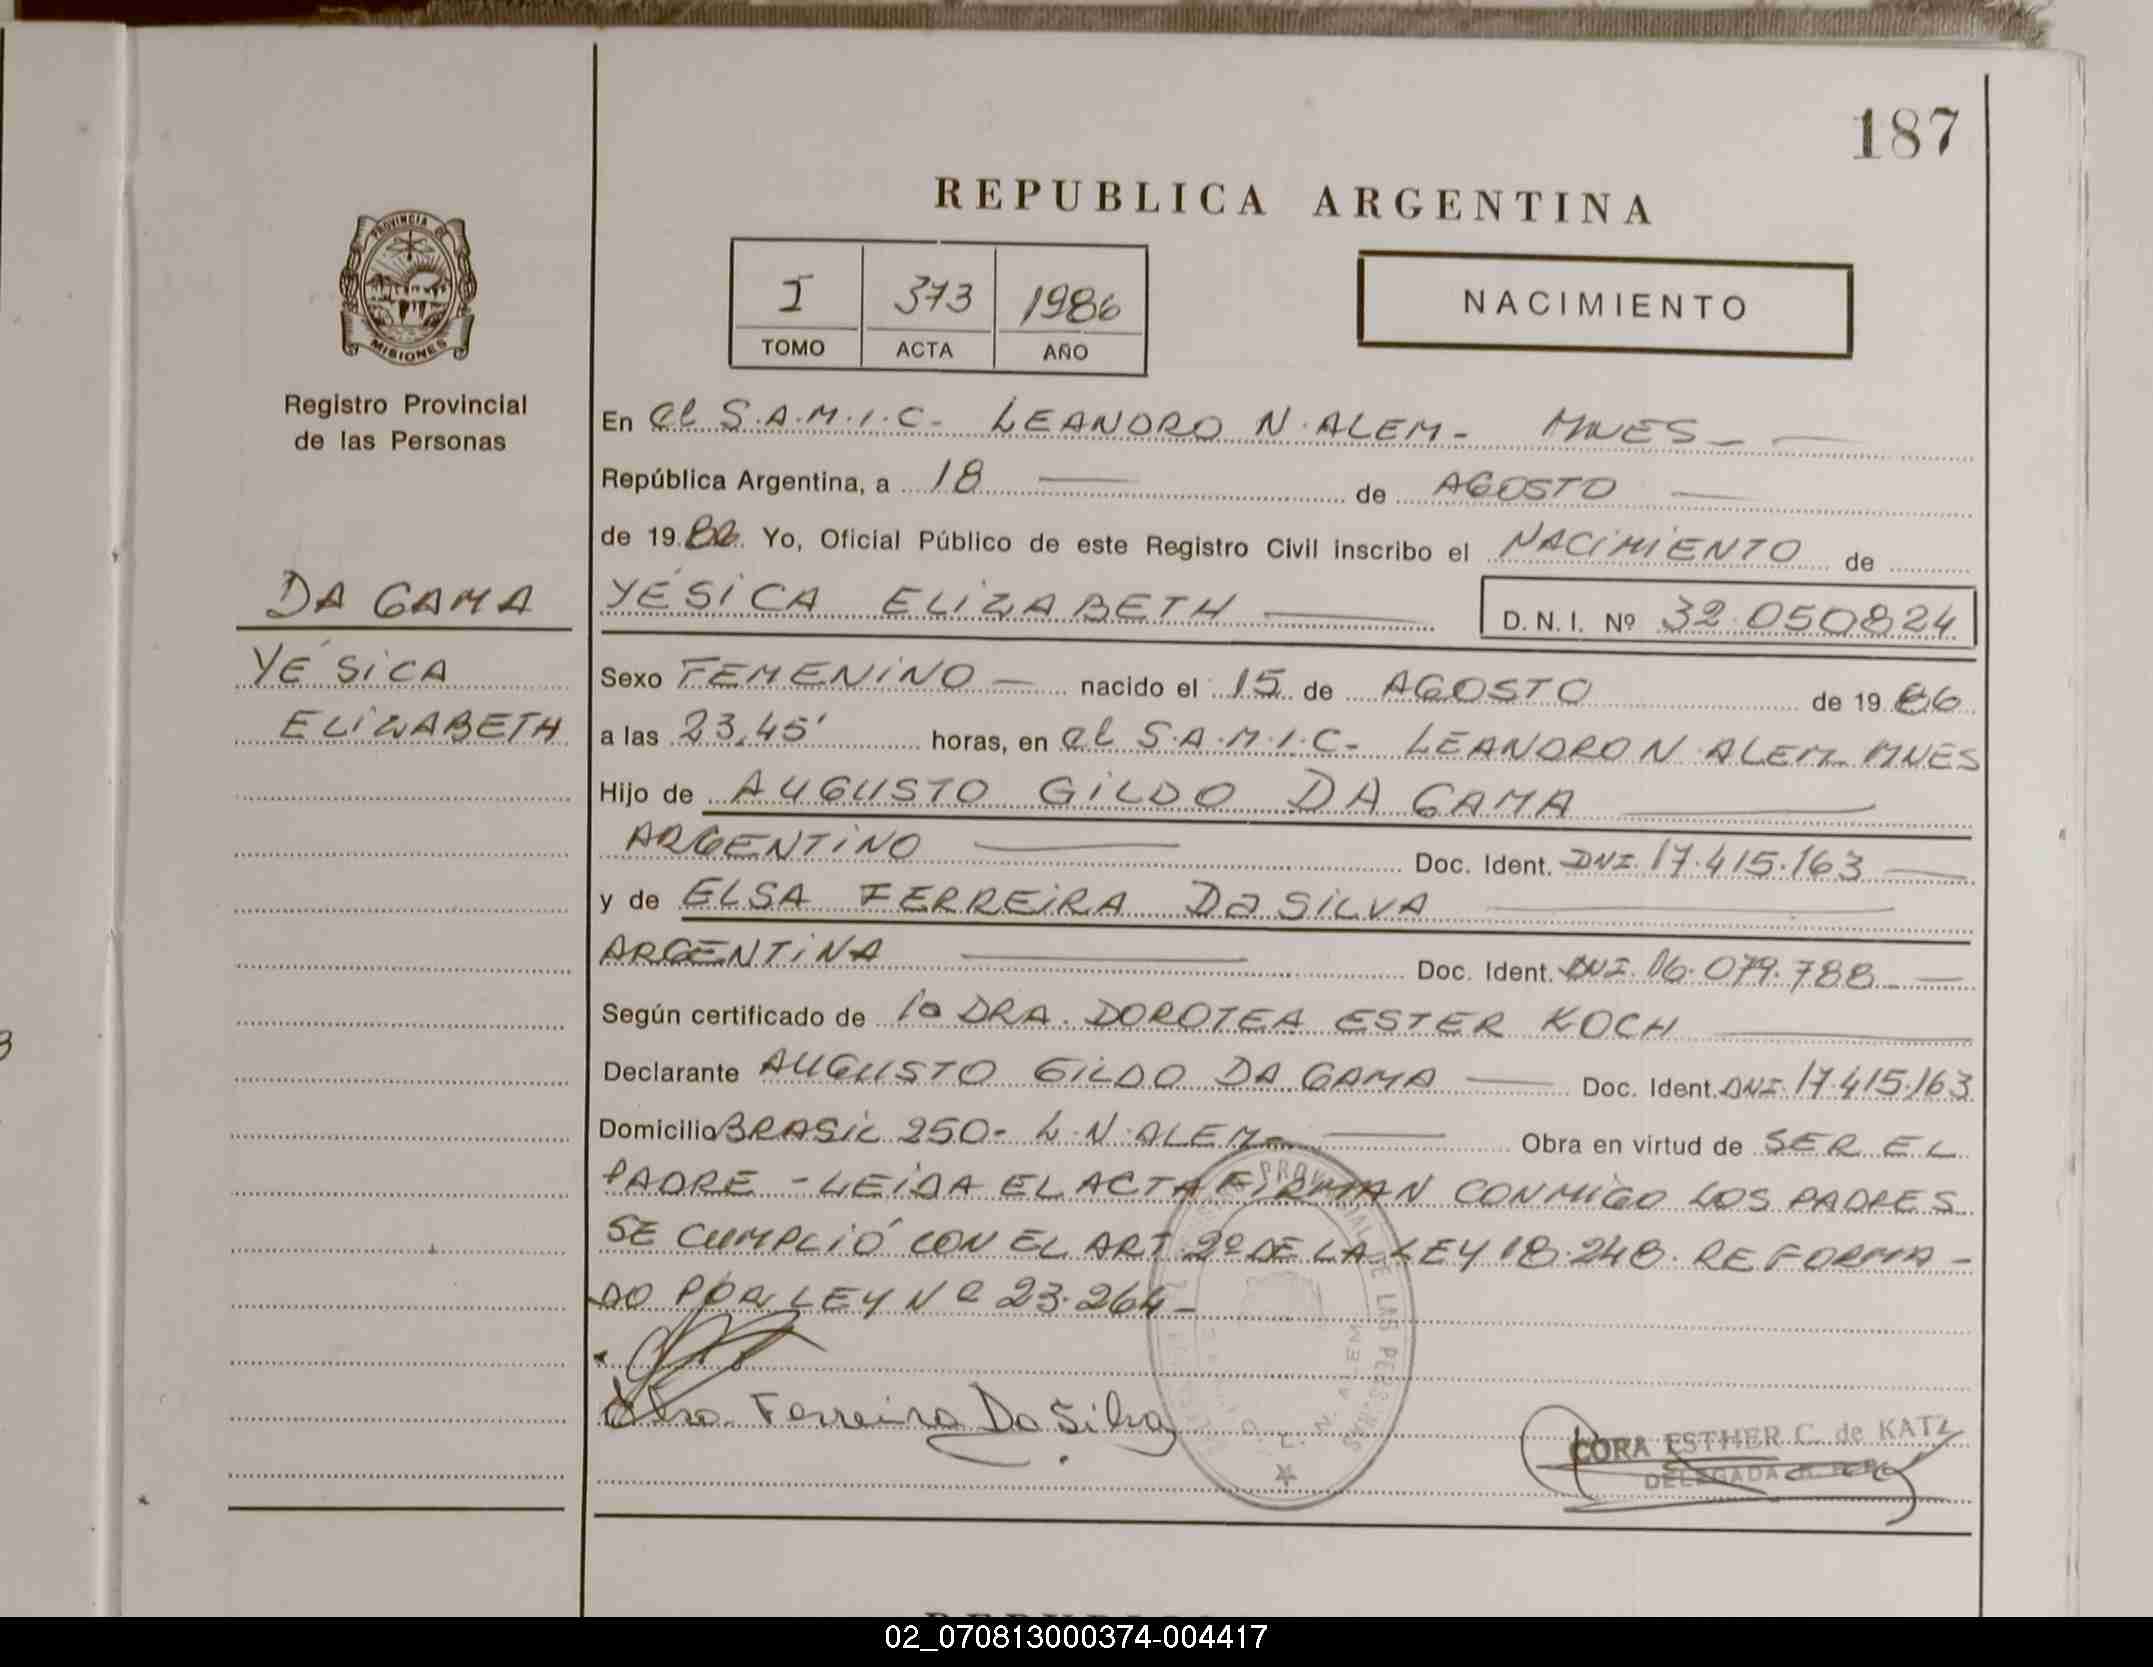 187
REPUBLICA ARGENTINA
PROVINCIA DE
MISIONES
Registro Provincial
de las Personas
I 373 1986
TOMO ACTA AÑO
NACIMIENTO
En el S.A.M.I.C- LEANDRO N. ALEM- MNES-
República Argentina, a 18 de AGOSTO
de 1986. Yo, Oficial Público de este Registro Civil inscribo el NACIMIENTO de
DA GAMA
YÉSICA ELIZABETH D.N.I. Nº 32.050824
YÉSICA
ELIZABETH
Sexo FEMENINO nacido el 15 de AGOSTO de 1986
a las 23,45' horas, en el S.A.M.I.C- LEANDRO N. ALEM- MNES
Hijo de AUGUSTO GILDO DA GAMA
ARGENTINO Doc. Ident. DNI. 17.415.163
y de ELSA FERREIRA Da SILVA
ARGENTINA Doc. Ident. DNI. 16.079.788
Según certificado de la DRA. DOROTEA ESTER KOCH
Declarante AUGUSTO GILDO DA GAMA Doc. Ident. DNI. 17.415.163
Domicilio BRASIL 250- L.N. ALEM- Obra en virtud de SER EL
PADRE - LEIDA EL ACTA FIRMAN CONMIGO LOS PADRES
SE CUMPLIÓ CON EL ART 2º DE LA LEY 18.248. REFORMA-
DO POR LEY Nº 23.264-
Elsa Ferreira Da Silva
CORA ESTHER C. de KATZ
DELEGADA
02_070813000374-004417